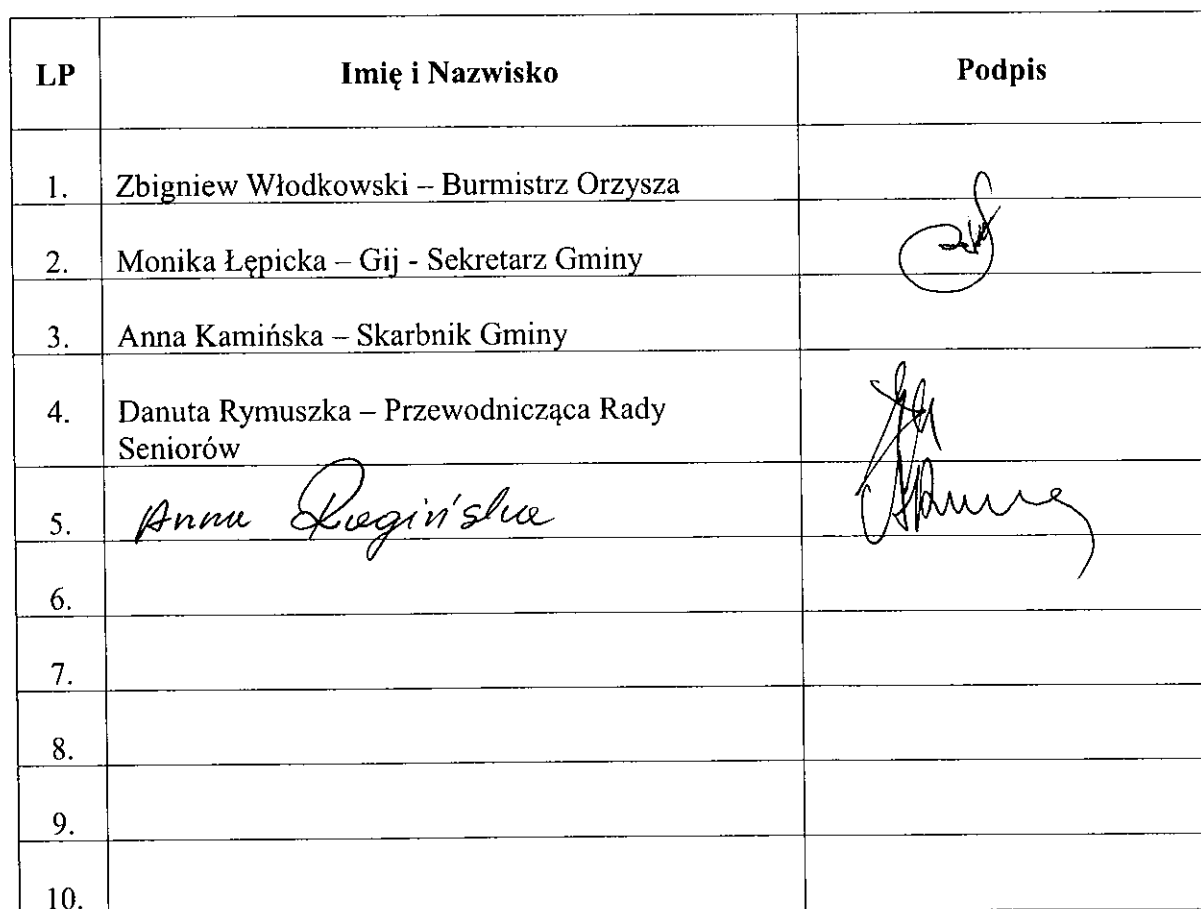 LP Imię i Nazwisko Podpis
1. Zbigniew Włodkowski – Burmistrz Orzysza
2. Monika Łępicka – Gij - Sekretarz Gminy
3. Anna Kamińska – Skarbnik Gminy
4. Danuta Rymuszka – Przewodnicząca Rady
Seniorów
5. Anna Rogińska
6.
7.
8.
9.
10.